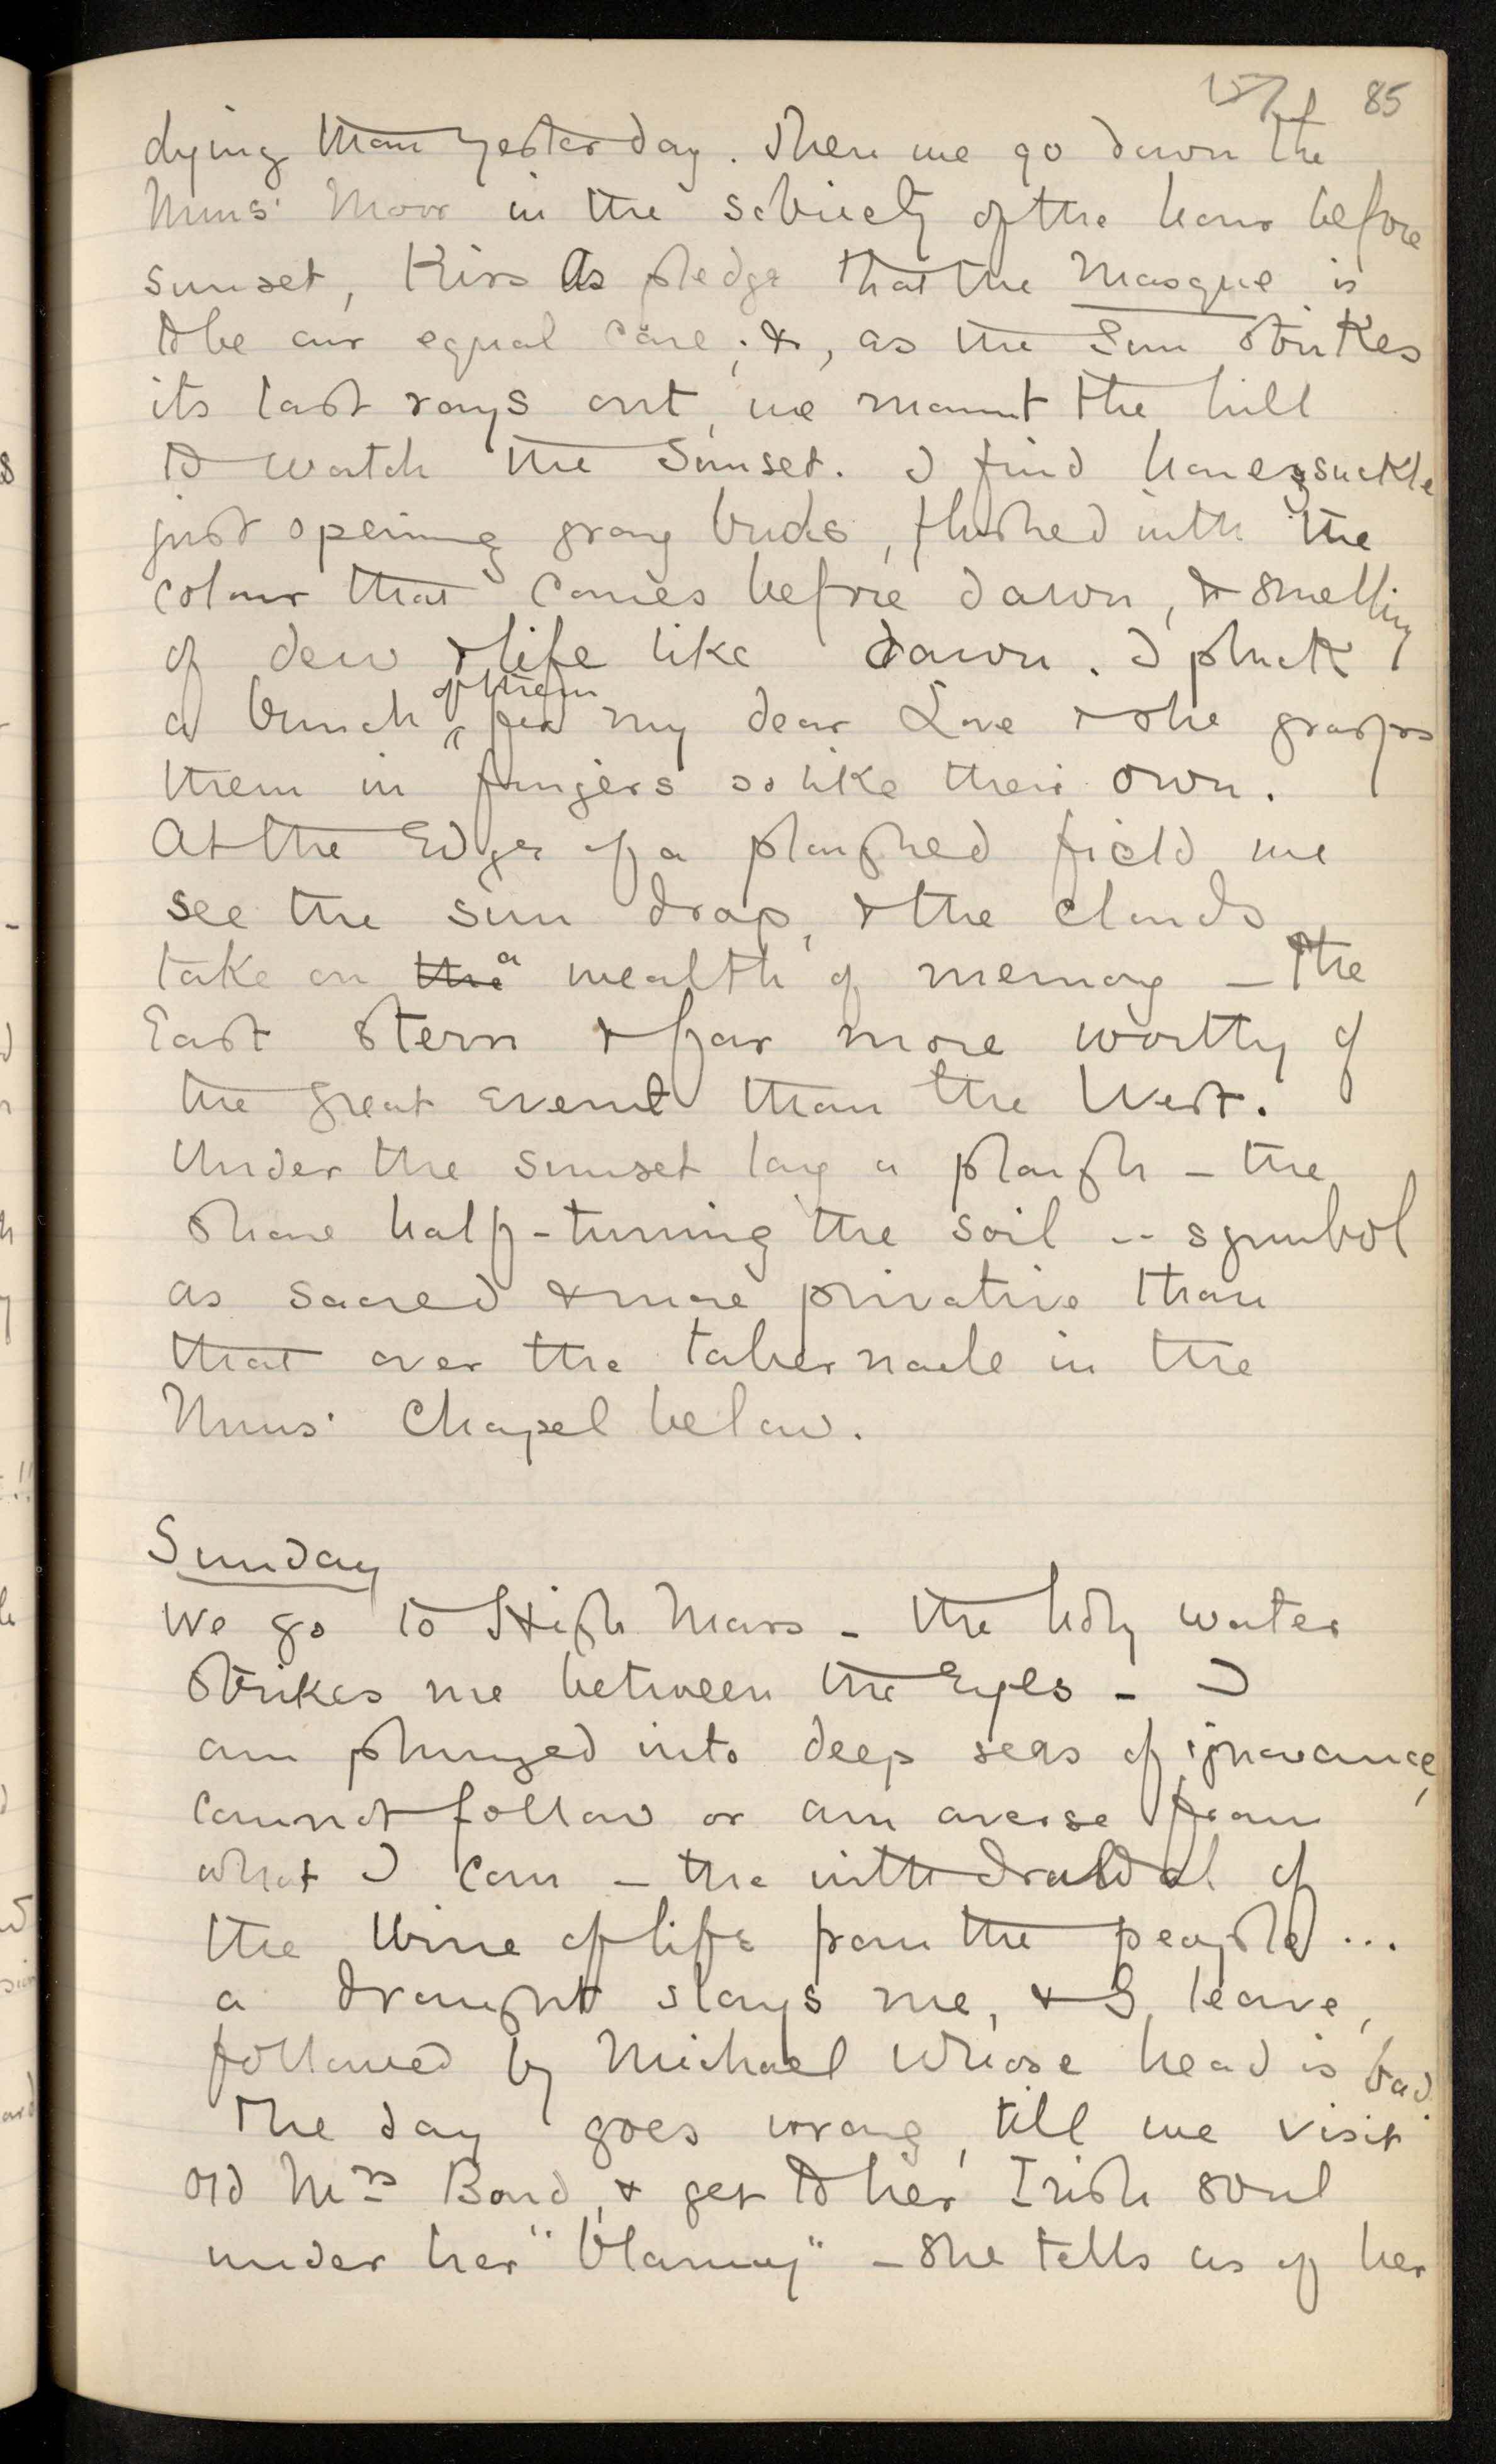 157 85
dying than yesterday. Then we go down the
Nuns' Moor in the sobriety of the hour before
sunset, Kiss as pledge that the Masque is
to be our equal care; &, as the Sun strikes
its last rays out, we mount the hill
to watch the Sunset. I find honeysuckle
just opening gray buds, flushed with the
colour that comes before dawn, & smelling
of dew & life like dawn. I pluck
a bunch of them for my dear Love & she grasps
them in fingers so like their own.
At the Edge of a ploughed field we
see the sun drop, & the clouds
take on the a wealth of memory – the
East stern & far more worthy of
the great event than the West.
Under the sunset lay a plough – the
share half-turning the soil -- symbol
as sacred & more primitive than
that over the tabernacle in the
Nuns' Chapel below.
Sunday
We go to High Mass – the holy water
strikes me between the Eyes – I
am plunged into deep seas of ignorance,
cannot follow or am averse from
what I can – the withdrawal of
the Wine of life from the people ...
a draught slays me, & I leave,
followed by Michael whose head is bad.
The day goes wrong, till we visit
old Mrs Bond, & get to her Irish soul
under her "blarney" – She tells us of her